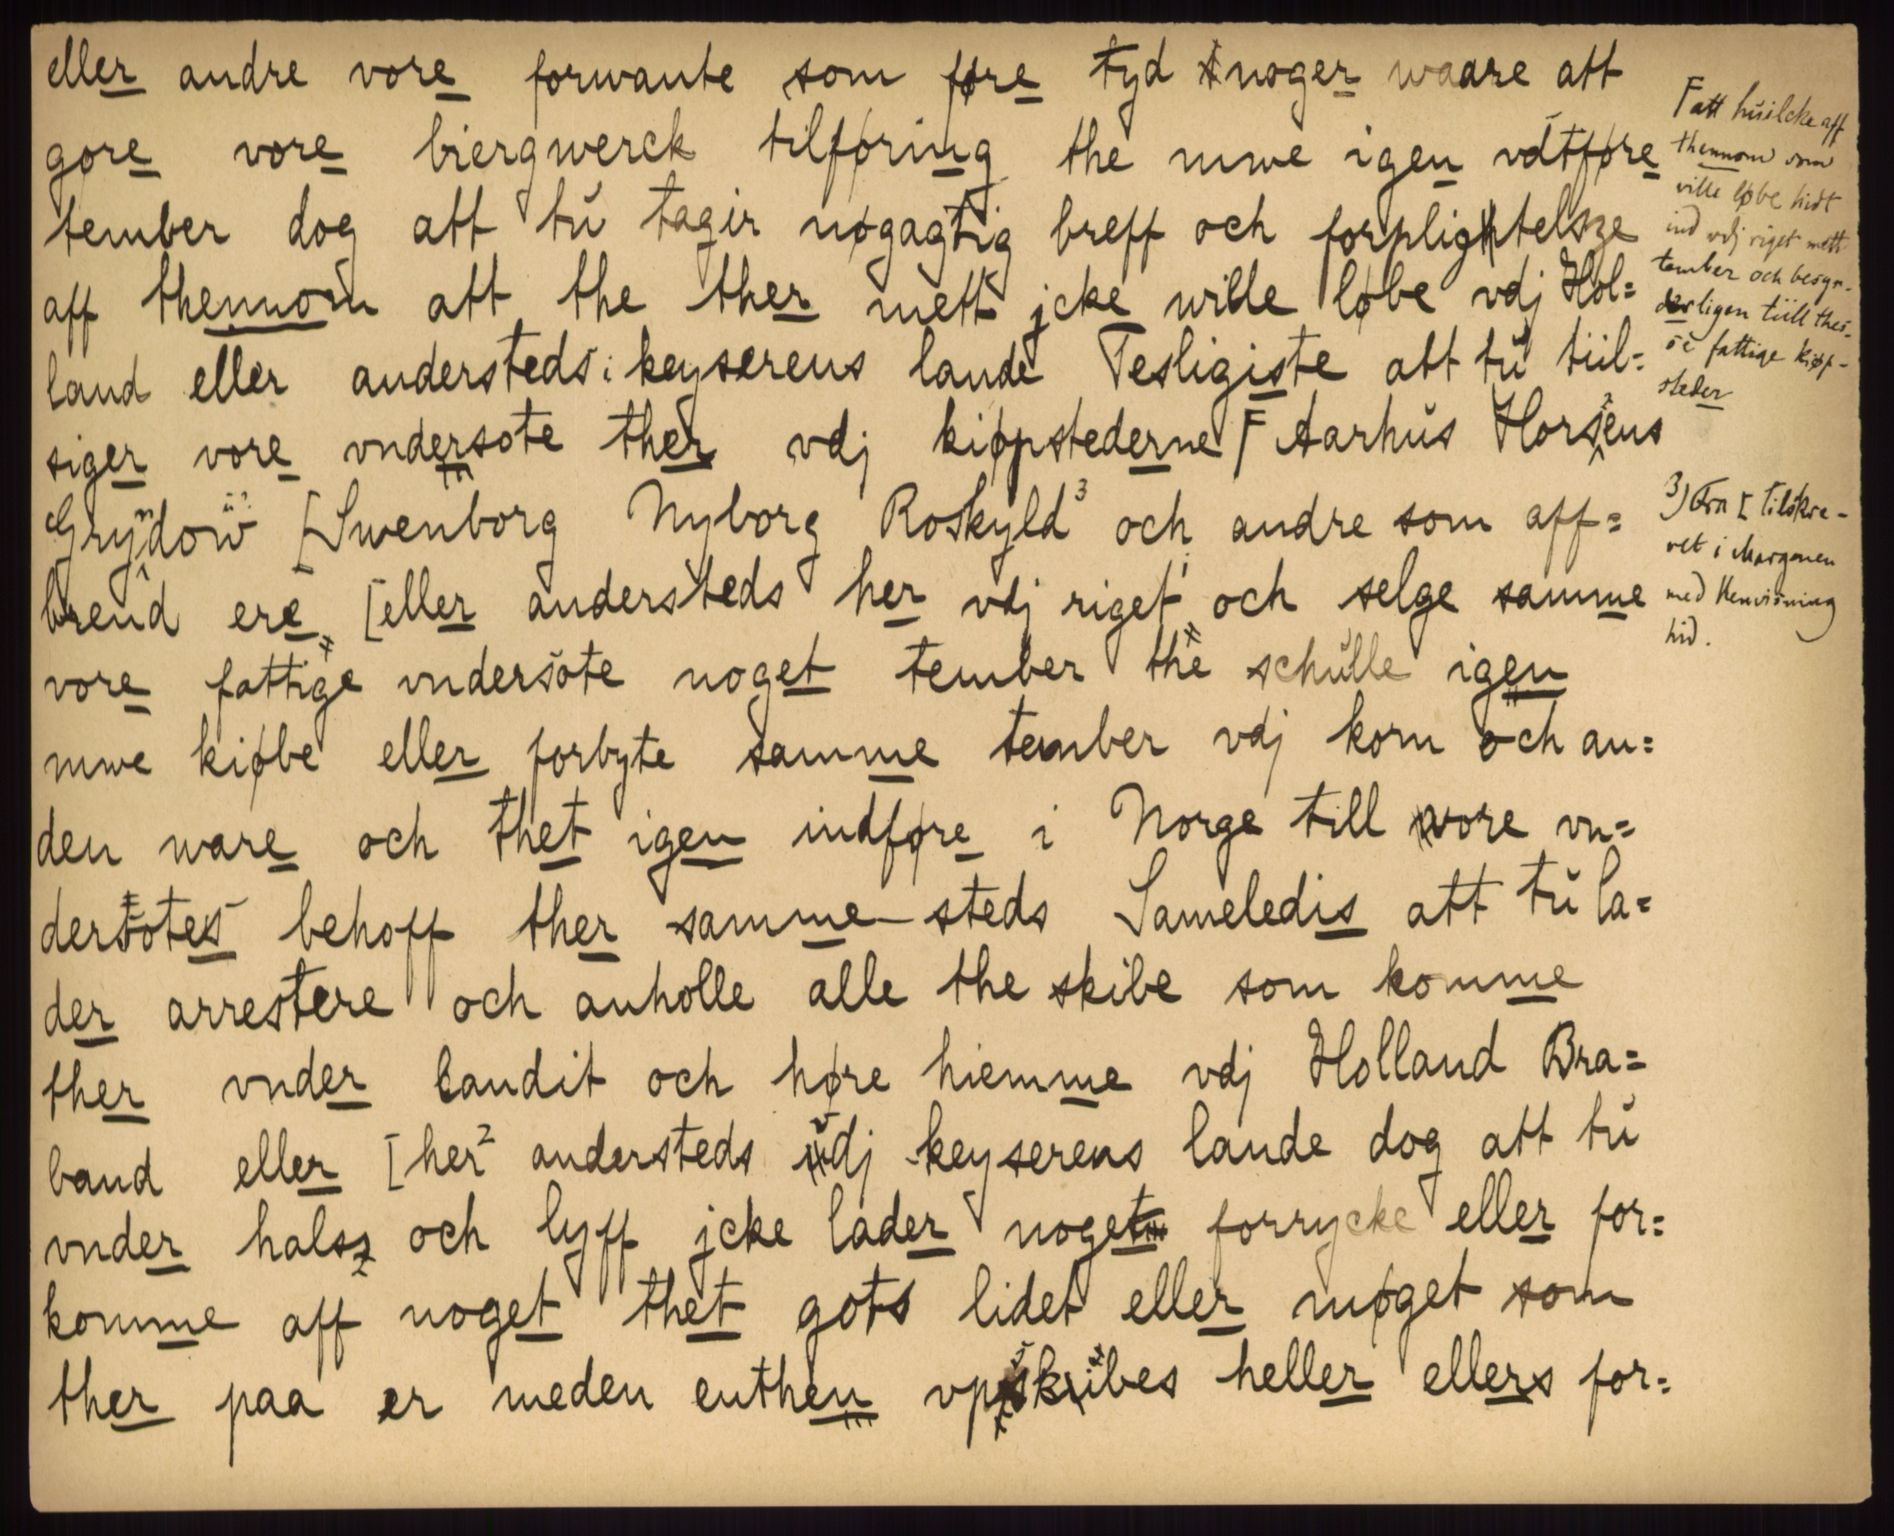 eller andre vore forwante som føre tyd noger waare att
gøre vore biergwerck tilføring the mwe igen vdtføre
tember dog att tŭ tagir nøgagtig breff och forpligtelsze
aff thennom att the ther mett jcke wille løbe vdj Hol=
land eller andersteds i keyserens lande Tesligiste att tŭ tiil=
siger vore vndersote ther vdj kiøpstederne F Aarhŭs Horsens
Grydow [Swenborg Nyborg Roskyld³ och andre som aff=
brend ere [eller andersteds her vdj riget¹ och selge samme
vore fattige vndersote noget tember the schŭlle igen
mwe kiøbe eller forbyte samme tember vdj korn och an=
den ware och thet igen indføre i Norge till vore vn=
dersotes behoff ther samme steds Sameledis att tŭ la=
der arrestere och anholle alle the skibe som komme
ther vnder landit och høre hiemme vdj Holland Bra=
band eller [her² andersteds vdj keyserens lande dog att tŭ
vnder halsz och lyff jcke lader noget forrycke eller for=
komme aff noget thet gots lidet eller møget som
ther paa er meden enthen vpskribes heller ellers for=
F att hŭilcke aff
thennom som
ville løbe hidt
ind vdj riget mett
tember och besyn-
derligen tiill thes-
se fattige kiøp-
steder
3) Fra [ tilskre-
vet i Margenen
med Henvisning
hid.